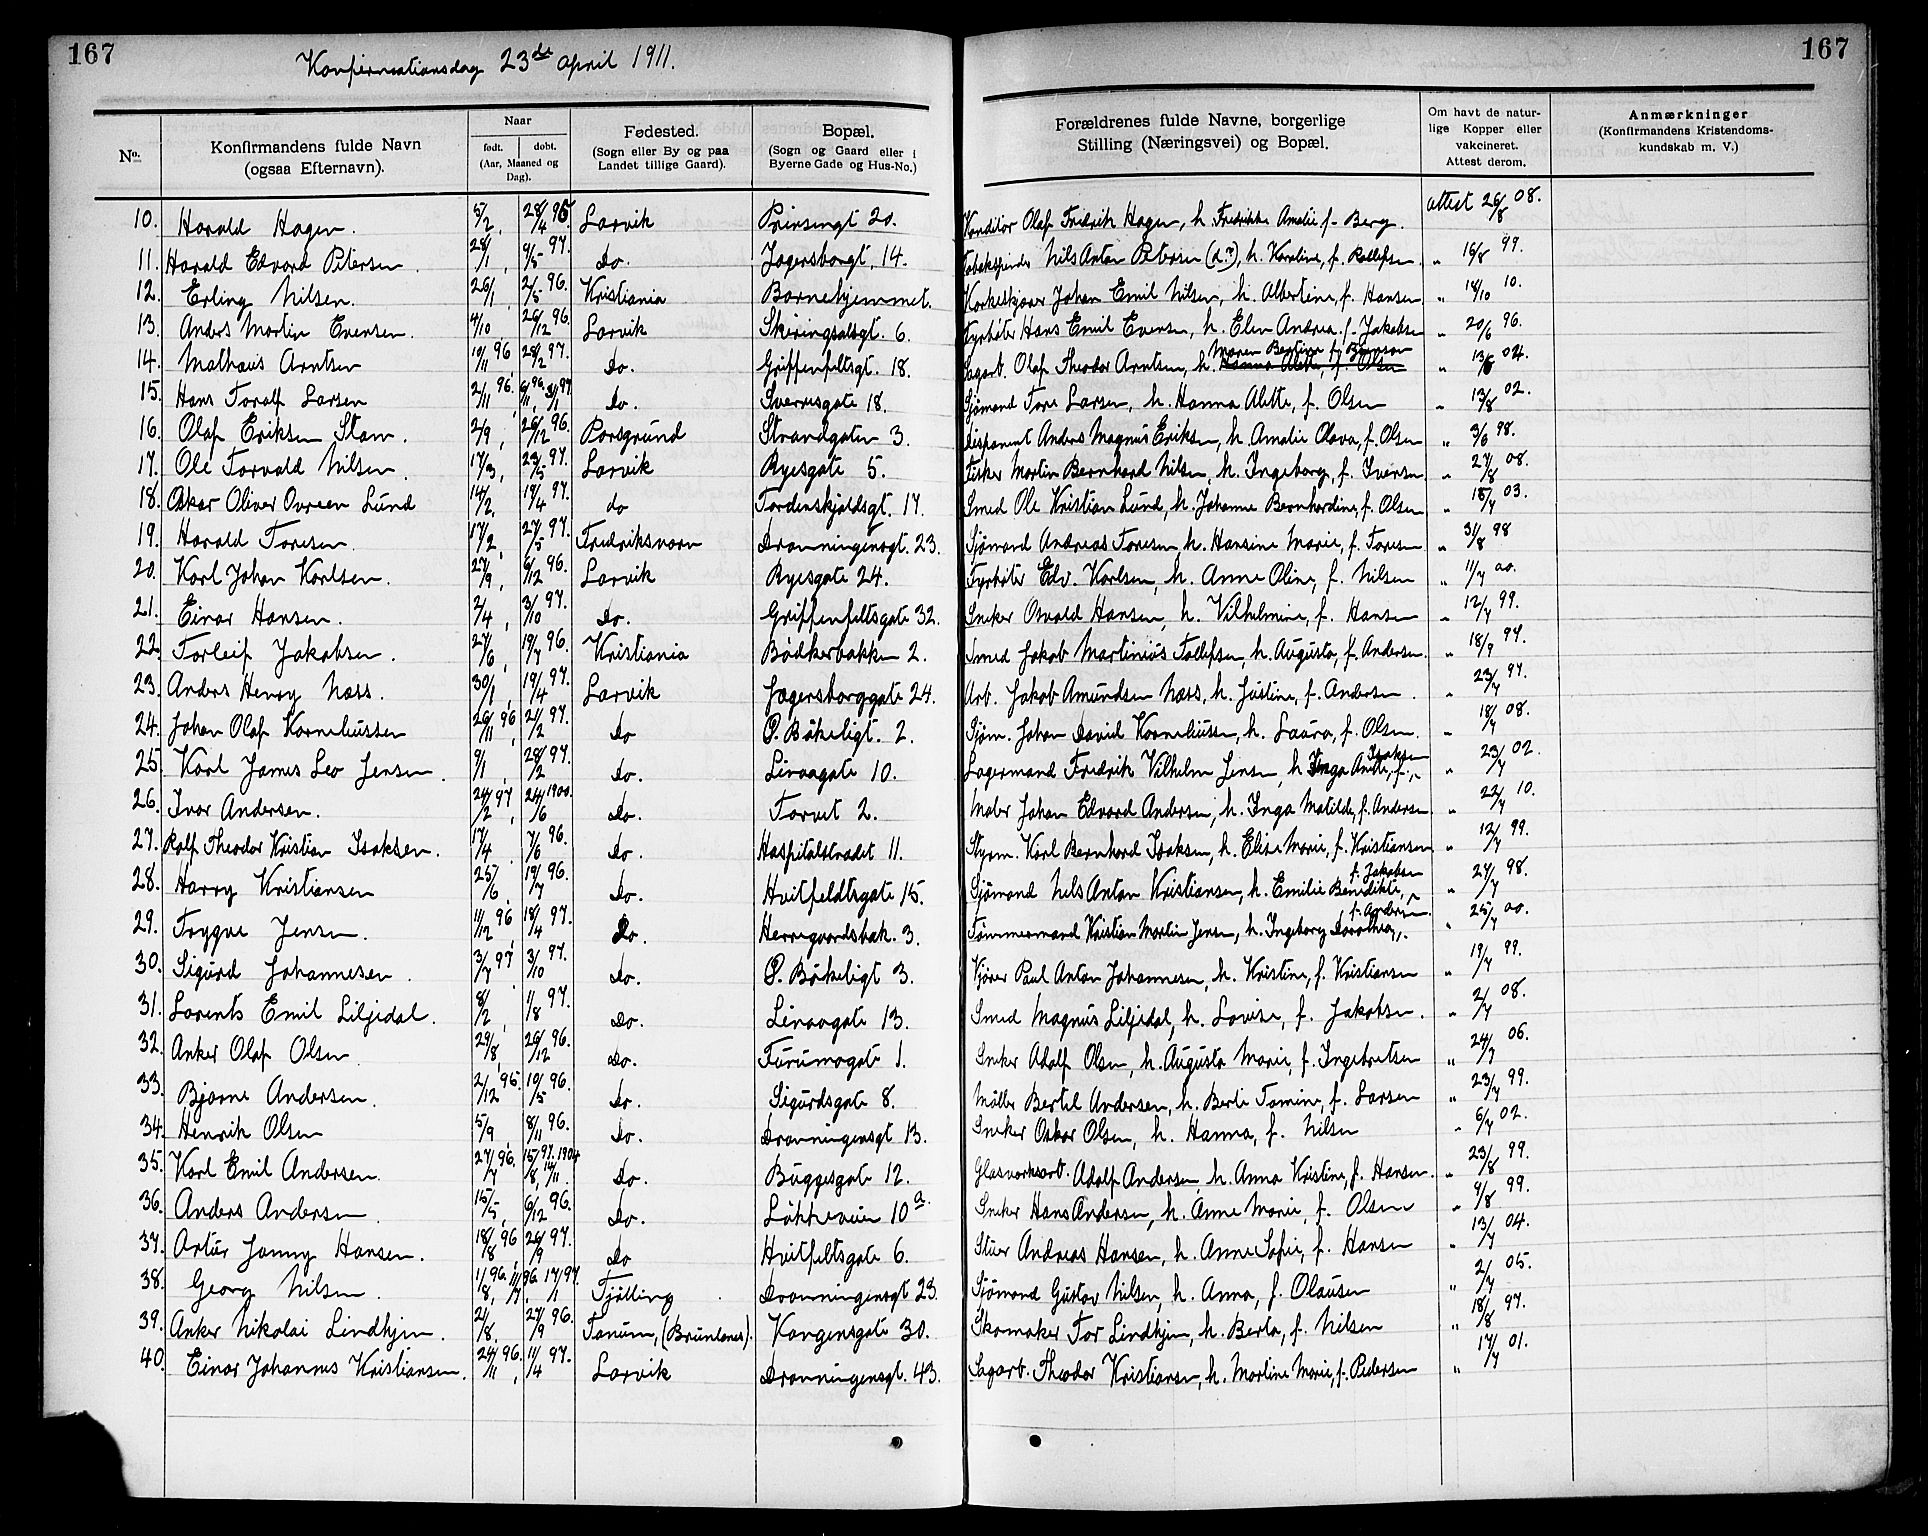 167
Konfirmationsdag 23de april 1911.
167
No.
Konfirmandens fulde Navn
(ogsaa Efternavn).
Naar
født. døbt.
(Aar, Maaned og
Dag).
Fødested.
(Sogn eller By og paa
Landet tillige Gaard).
Bopæl.
(Sogn og Gaard eller i
Byerne Gade og Hus-No.)
Forældrenes fulde Navne, borgerlige
Stilling (Næringsvei) og Bopæl.
Om havt de natur-
lige Kopper eller
vakcineret.
Attest derom.
Anmærkninger
(Konfirmandens Kristendoms-
kundskab m. V.)
10. Harald Hagen. 5/2, 28/4 96 Larvik Prinsensgt 20. Konditor Olaf Fredrik Hagen, h. Fredrikke Amalie f. Berg. attest 26/8 08.
11. Harald Edvard Petersen. 28/1, 9/5 97. Do. Jegersborgt. 14. Nils Anton Petersen (d.?), h. Karoline, f. Rollefsen. " 16/8 99.
12. Erling Nilsen. 26/1, 2/5 96. Kristiania Barnehjemmet. Korkeskjærer Johan Emil Nilsen, h. Albertine, f. Hansen " 18/10 10.
13. Anders Martin Evensen. 4/10 26/12 96. Larvik Skiringsalsgt. 6. Fyrbøter Hans Emil Evensen, h. Elen Andrea f. Jakobsen " 20/6 96.
14. Mathæus Arntsen 10/11 96 28/2 97. Do. Griffenfeltsgt. 18. Sagarb. Olaf Theodor Arntsen, h. Maren Bertine f. Bjørnson Hanna Alette, f. Olsen " 13/8 04.
15. Hans Toralf Larsen 2/11 96. 6/11 96. 31/1 97 Do. Sverresgate 18. Sjømand Tore Larsen, h. Hanna Alette, f. Olsen " 13/8 02.
16. Olaf Eriksen Stam. 2/9, 26/12 96. Porsgrund Strandgaten 3. Disponent Anders Magnus Eriksen, h. Amalie Olava, f. Olsen " 3/6 98.
17. Ole Torvald Nilsen. 17/3, 23/5 97. Larvik Ryesgate 5. Fisker Martin Bernhard Nilsen, h. Ingeborg, f. Iversen " 27/8 08.
18. Oskar Oliver Ovreen Lund 14/2, 17/4 97. do Tordenskjoldsgt. 17. Smed Ole Kristian Lund, h. Johanne Bernhardine, f. Olsen " 18/7 03.
19. Harald Toresen. 17/2, 27/5 97. Fredriksværn Dronningensgt. 23. Sjømand Andreas Toresen, h. Hansine Marie, f. Toresen " 31/8 98
20. Karl Johan Karlsen. 27/9, 6/12 96. Larvik Ryesgate 24. Fyrbøter Edv. Karlsen, h. Anne Oline, f. Nilsen " 11/7 00.
21. Einar Hansen. 2/4, 3/10 97. Do. Griffenfeltsgate 32. Sneker Osvald Hansen, h. Vilhelmine, f. Hansen " 12/7 99.
22. Torleif Jakobsen. 27/6, 19/7 96. Kristiania Bødkerbakken 2. Smed Jakob Martinius Tollefsen, h. Augusta, f. Andersen. " 18/9 97.
23. Anders Henry Næss. 30/1, 19/4 97. Larvik Jegersborggate 24. Arb. Jakob Amundsen Næss, h. Justine, f. Andersen. " 23/7 97.
24. Johan Olaf Korneliussen 26/11 96, 21/2 97. Do Ø. Bøkeligt. 2. Sjøm. Johan David Korneliussen, h. Laura, f. Olsen. " 18/7 08.
25. Karl James Leo Jensen. 9/1 28/2 97. Do. Linaagate 10. Lagermand Fredrik Vilhelm Jensen, h. Inga Anette, f. Isaksen " 23/7 02.
26. Ivar Andersen. 24/2 97, 24/6 1900. Do. Torvet 2. Maler Johan Edvard Andersen, h. Inga Matilde, f. Andersen " 22/7 10.
27. Rolf Theodor Kristian Isaksen. 17/4 7/6 96. Do. Hospitalstrædet 11. Styrm. Karl Bernhard Isaksen, h. Elise Marie, f. Kristiansen " 12/7 99.
28. Harry Kristiansen 25/6, 19/7 96. Do. Hvitfeldtsgate 15. Sjømand Nils Anton Kristiansen, h. Emilie Benedikte, f. Jakobsen " 27/7 98.
29. Trygve Jensen. 11/12 96, 18/4 97. Do. Herregaardsbak. 3. Tømmermand Kristian Martin Jensen, h. Ingeborg Dorothea, f. Andersen. " 25/7 00.
30. Sigurd Johannesen. 3/7 97 3/10 97. Do. Ø. Bøkeligt 3. Kjører Paul Anton Johannesen, h. Kristine, f. Kristiansen " 19/7 99.
31. Lorents Emil Liljedal. 8/2, 1/8 97. Do. Linaagate 13. Smed Magnus Liljedal, h. Lovise, f. Jakobsen. " 2/7 08.
32. Anker Olaf Olsen. 29/8, 26/12 96. Do. Furumogate 1. Sneker Adolf Olsen, h. Augusta Marie, f. Ingebretsen " 24/9 06.
33. Bjarne Andersen. 2/12 95. 10/5 96. Do. Sigurdsgate 8. Møller Bertel Andersen, h. Berte Tomine, f. Larsen " 23/7 99.
34. Henrik Olsen 5/9, 8/11 96. Do. Dronningensgt 13. Sneker Oskar Olsen, h. Hanna, f. Nilsen " 6/7 02.
35. Karl Emil Andersen. 27/7 96. 15/8 97. 14/11 1904 Do. Buggesgate 12. Glasværksarb. Adolf Andersen, h. Anna Kristine, f. Hansen. " 23/8 99.
36. Anders Andersen. 15/5, 6/12 96. Do. Løkkeveien 10a. Sneker Hans Andersen, h. Anne Marie, f. Olsen " 9/8 99.
37. Artur Jonny Hansen. 18/8 96 26/9 97. Do Hvitfeltsgate 6. Stuer Andreas Hansen, h. Anne Sofie, f. Hansen " 13/7 04.
38. Georg Nilsen. 1/8 96. 11/7 96. 17/1 97. Tjølling Dronningensgt 23. Sjømand Gustav Nilsen, h. Anna, f. Olausen " 2/7 05.
39. Anker Nikolai Lindhjem. 21/8. 27/9 96. Tanum, (Brunlanes). Kongensgate 30. Skomaker Tor Lindhjem, h. Berta, f. Nilsen " 18/8 97.
40. Einar Johannes Kristiansen. 24/11 96. 11/4 97. Larvik Dronningensgt. 43. Sagarb. Theodor Kristiansen, h. Martine Marie, f. Pedersen " 17/7 01.